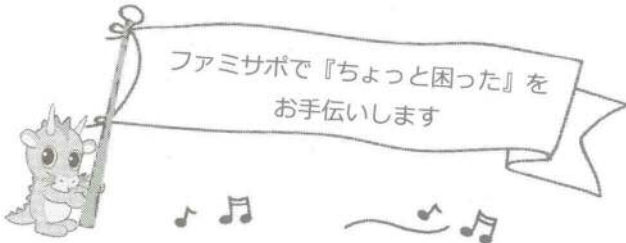 ファミサポで『ちょっと困った』を
お手伝いします